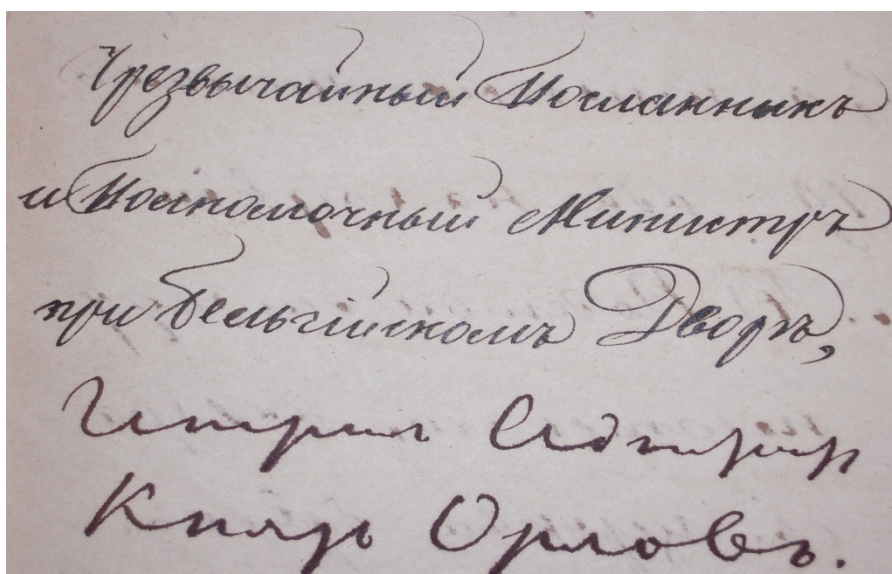 Чрезвычайный Посланникъ
и Полномочный Министръ
при Бельгійскомъ Дворѣ,
Князь Орловъ.